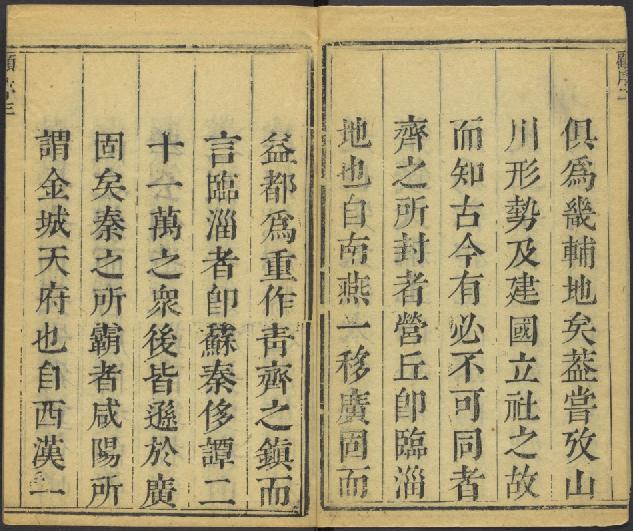 俱爲畿輔地矣葢嘗攷山
川形勢及建國立社之故
而知古今有必不可同者
齊之所封者營丘卽臨淄
地也自南燕一移廣固而
益都爲重作靑齊之鎭而
言臨淄者卽蘇秦侈譚二
十一萬之衆後皆遜於廣
固矣秦之所霸者咸陽所
謂金城天府也自西漢一
顧序二
顧序三